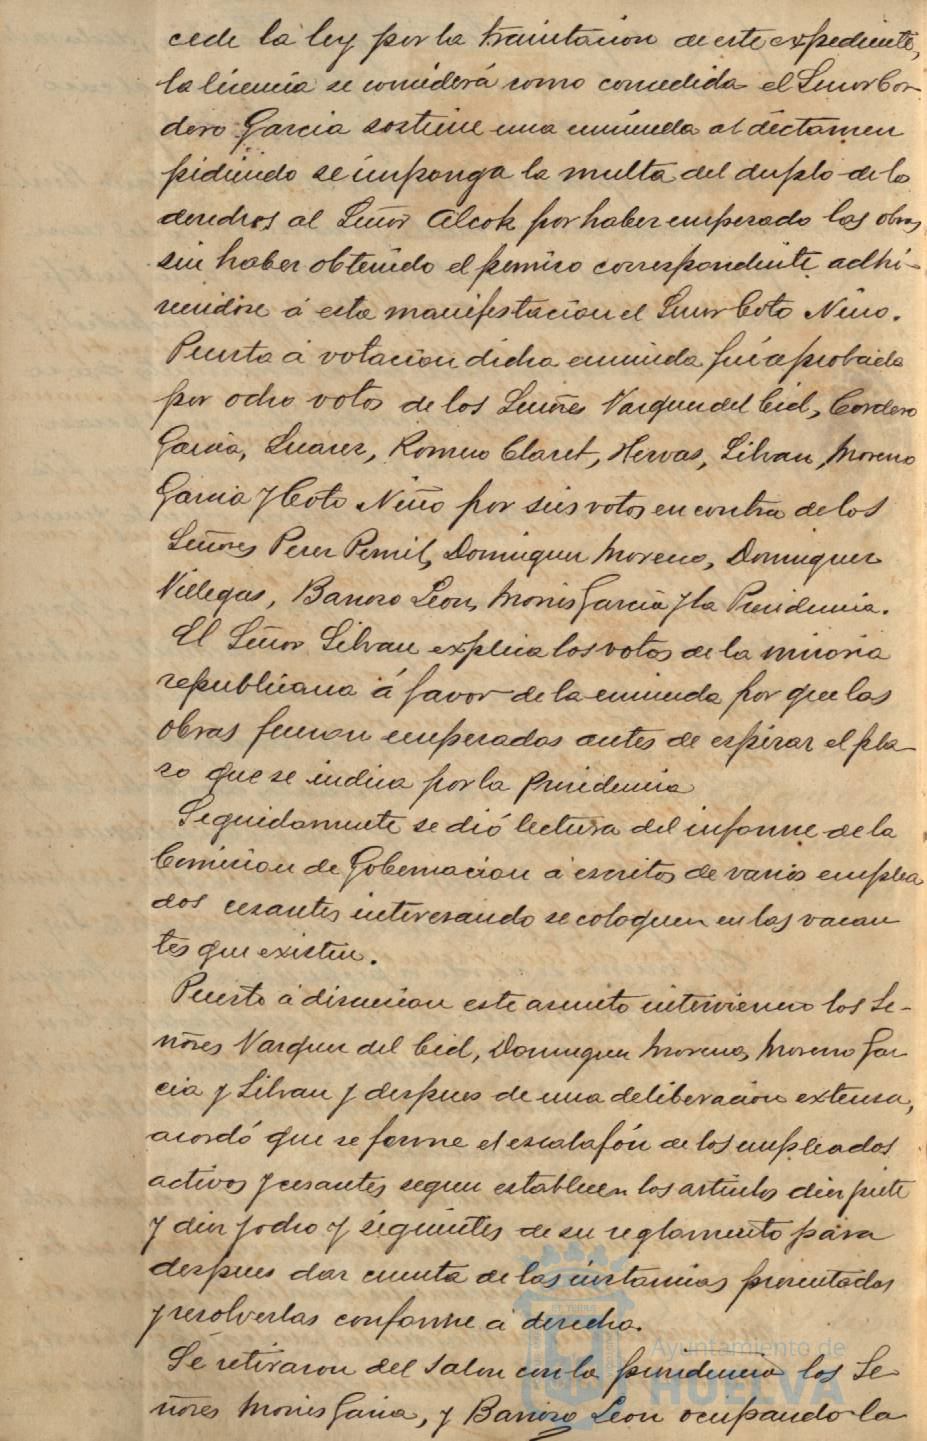 cede la ley por la tramitacion de este expediente,
la licencia se considerá como concedida el Señor Cor-
dero Garcia sostiene una enmienda al dictamen
pidiendo se imponga la multa del duplo de lo
derechos al Señor Alcok por haber empezado las obras
sin haber obtenido el permiso correspondiente adhi-
riendose á esta manifestacion el Señor Coto Niño.
Puesta á votacion dicha enmienda fué aprobada
por ocho votos de los Señores Vazquez del Cid, Cordero
Garcia, Suarez, Romero Claret, Hervas, Silvan, Moreno
Garcia y Coto Niño por seis votos en contra de los
Señores Perez Pernil, Dominguez Moreno, Dominguez
Villegas, Barroso Leon, Monis Garcia y la Presidencia.
El Señor Silvan explica los votos de la minoria
republicana á favor de la enmienda por que las
obras fueron empezadas antes de espirar el pla-
zo que se indica por la Presidencia
Seguidamente se dió lectura del informe de la
Comision de Gobernacion á escritos de varios emplea
dos cesantes interesando se coloquen en las vacan
tes que existen.
Puesto á discusion este asunto intervienen los Se-
ñores Vazquez del Cid, Dominguez Moreno, Moreno Gar
cia y Silvan y despues de una deliberacion extensa,
acordó que se forme el escalafón de los empleados
activos y cesantes segun establecen los articulos diez y siete
y diez y ocho y siguientes de su reglamento para
despues dar cuenta de las instancias presentadas
y resolverlas conforme á derecho.
Se retiraron del salon con la presidencia los Se-
ñores Monis Garcia, y Barroso Leon ocupando la
Ayuntamiento de
HUELVA